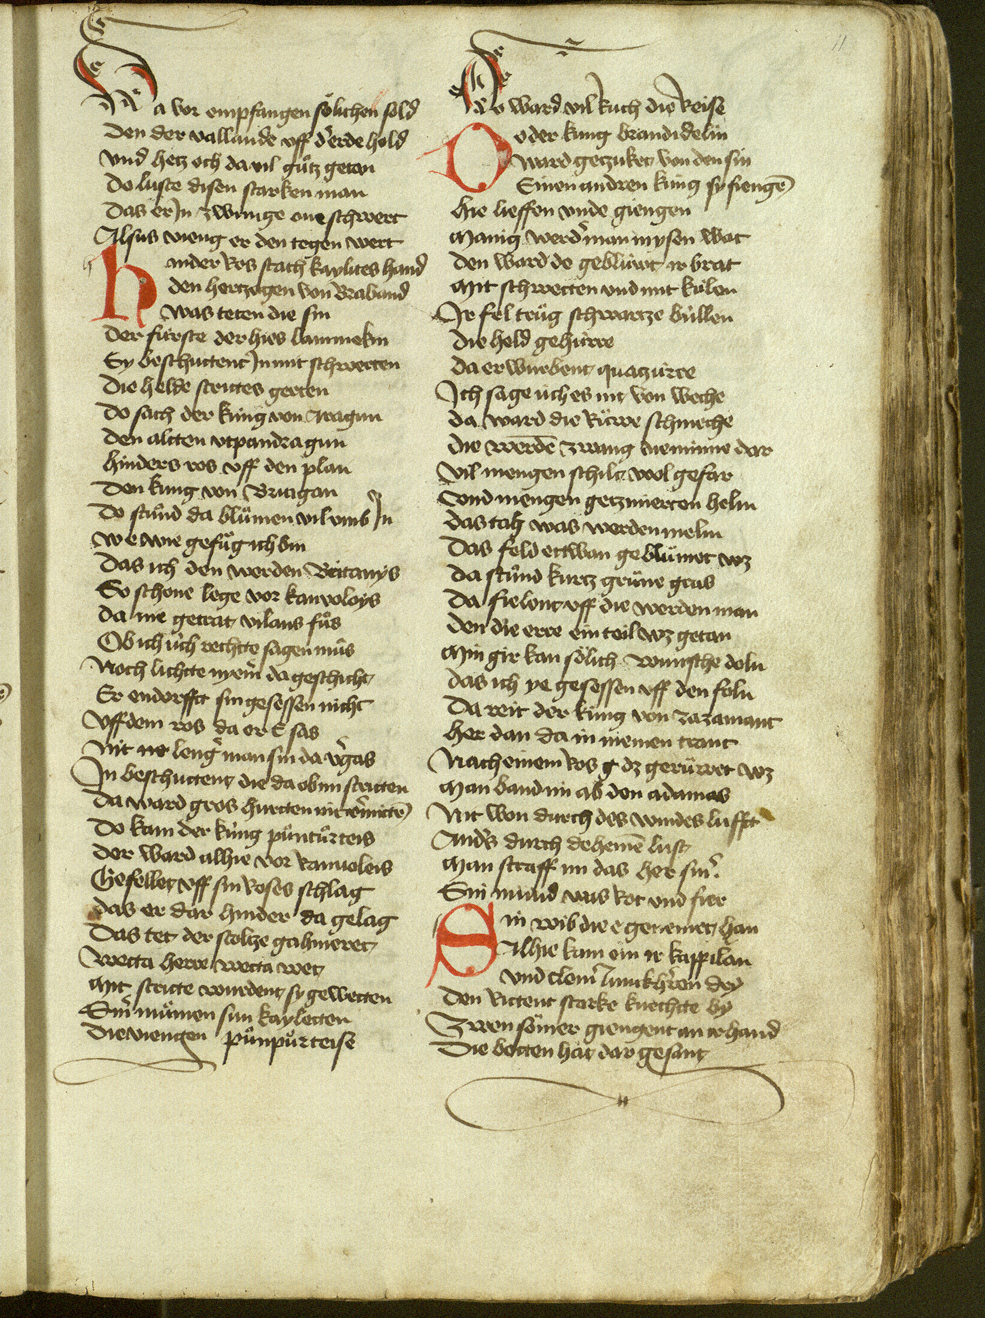 11
Wa vor empfangen sölichen sold
Den der vallande uff d'erde hold
Und hetz och da vil gůtz getan
Do luste disen starken man
Das er Jn zwunge one schwert
Alsus vieng er den tegen wert
Hinder ros stach kaylites hand
den hertzogen von Braband
was teten die sin
Der fürste der hies lammekin
Sy beschuttent Jn mit schwertten
Die helde strittes gerten
Do stach der küng von Aragun
den altten utpandragun
hinders ros uff den plan
Den küng von Brurgan
Do stůnd da blůmen vil umb Jn
we wie gefůg ich bin
Das ich den werden Brittanys
So schone lege vor kanvoloys
da nie getrat vilans fůs
Ob ich üch rechtte sagen můs
Noch lichtte niem' da geschicht
Er endorfft sin gesessen nicht
Uff dem ros da er E sas
Nit leng' man sin da v'gas
Jn beschuttent die da ob im stritten
Da ward gros hurtten nit v'mitten
Do kam der küng půntůrteis
der ward alhie vor kanvoleis
Gefellet uff sin roses schlag
das er dar hinder da gelag
Das tet der stoltze gahmeret
Wetta herre wetta wet
Mit stritte wurdent sy gewetten
Sin' můmen sun kayletten
Die viengen půnpůrteise
Do ward vil ruch die reise
Do der küng brandidelin
ward gezuket von den sin
Einen andren küng sy fiengen
Hie lieffen unde giengen
Manig werd' man in ysen wat
den ward de geblüwt ir brat
Mit schwertten und mit külen
Jr fel trůg schwartze büllen
die held gehürre
da erwurbent quatzürre
Jch sage üch es nit von weche
da ward die Rüwe schmeche
die werden zwang die minne dar
Vil mengen schilt wol gefar
Vnd mengen gezimierten helm
das tach was werden melm
Das feld ettwan geblůmet wz
da stůnd kurtz grüne gras
Da fielent uff die werden man
den die erre ein teil wz getan
Min gir kan sölich wunsche doln
das ich ye gesessen uff den foln
Da reit der küng von zazamant
Her dan da in niemen trant
Nach einem ros dz gerüwet wz
Man band im ab den adamas
Nit won durch des windes lufft
And's durch deheinen lust
Man straff im das her sin'
Sin mund was rot und fier
Ein wib die e genemet han
Alhie kam ein ir kappilan
und clein' iunkh'ren dry
Den rittent starke knechtte by
Zwen sömer giengent an ir hand
Die botten hat dar gesant